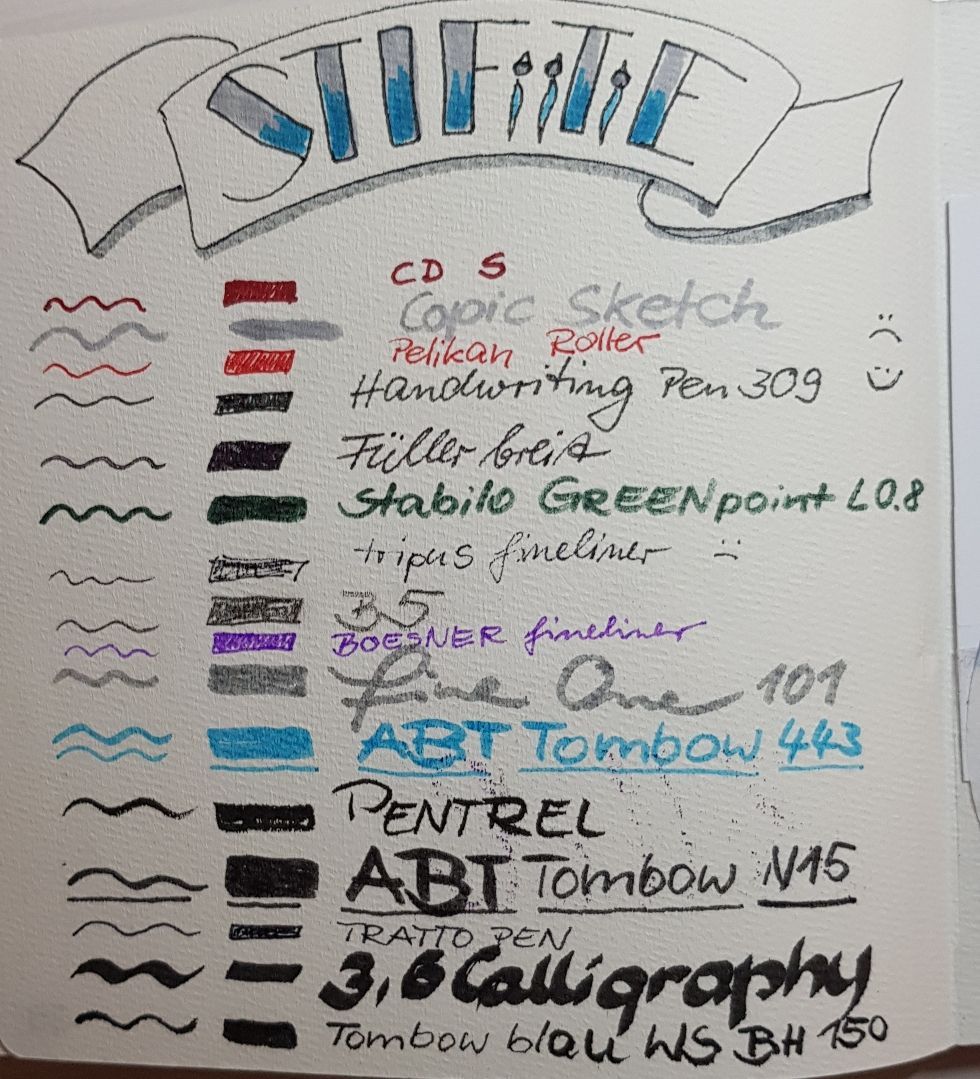 STIFTE
CD S
Copic Sketch
Pelikan Roller
Handwriting Pen 309
Füller breit
Stabilo GREENpoint L0.8
tripus fineliner
B5
BOESNER fineliner
fine One 101
ABT Tombow 443
PENTREL
ABT Tombow N15
TRATTO PEN
3,6 Calligraphy
Tombow blau WS BH 150